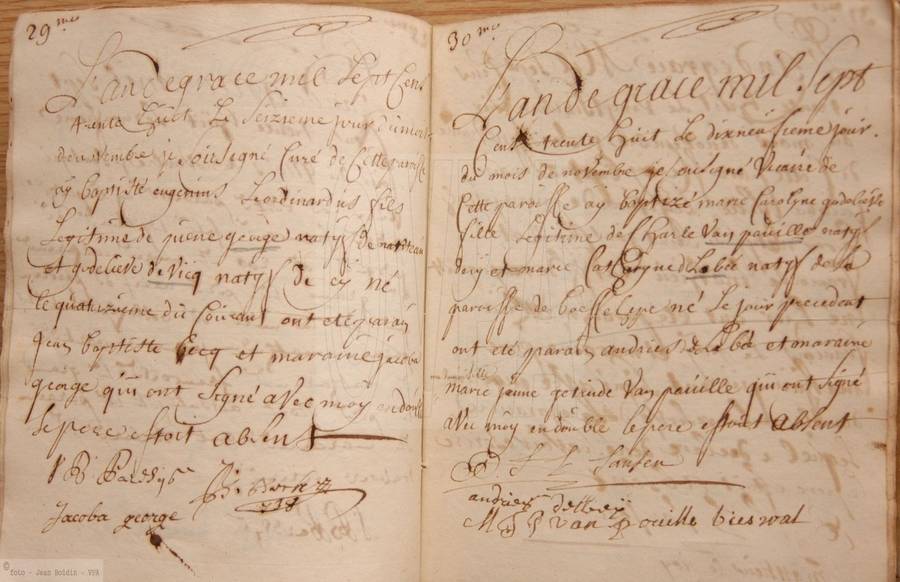 29.me
L'an de grace mil Sept Cens
trente huit Le Seizieme jour du mois
de novembre je soussigné Curé de Cette paroisse
ay baptisé eugenius Leordinardus fils
Legitime de piere george natyf de
et godelieve de Vicq natyf De Cy né
le quatuzieme du Courant ont eté parain
jean baptiste et maraine jacoba
george qui ont Signé avec moy en double
le pere estoit absent
Jacoba george
30.me
L'an de grace mil Sept
Cent trente Huit Le dixneufieme jour
du mois de novembre je sousigné Vicaire de
Cette paroisse ay baptizé marie Carolyne godelieve
fille Legitime de Charle Van pouille natyf
d'icy et marie Catharyne de La bee natyf de la
paroisse de boesselepe né Le jour precedent
ont eté parain andries de La bee et maraine
marie jeune getrude Van pouille qui ont Signé
avec moy en double le pere estoit absent
andries
van Pouille bieswal
© foto - Jean Boidin - VPA